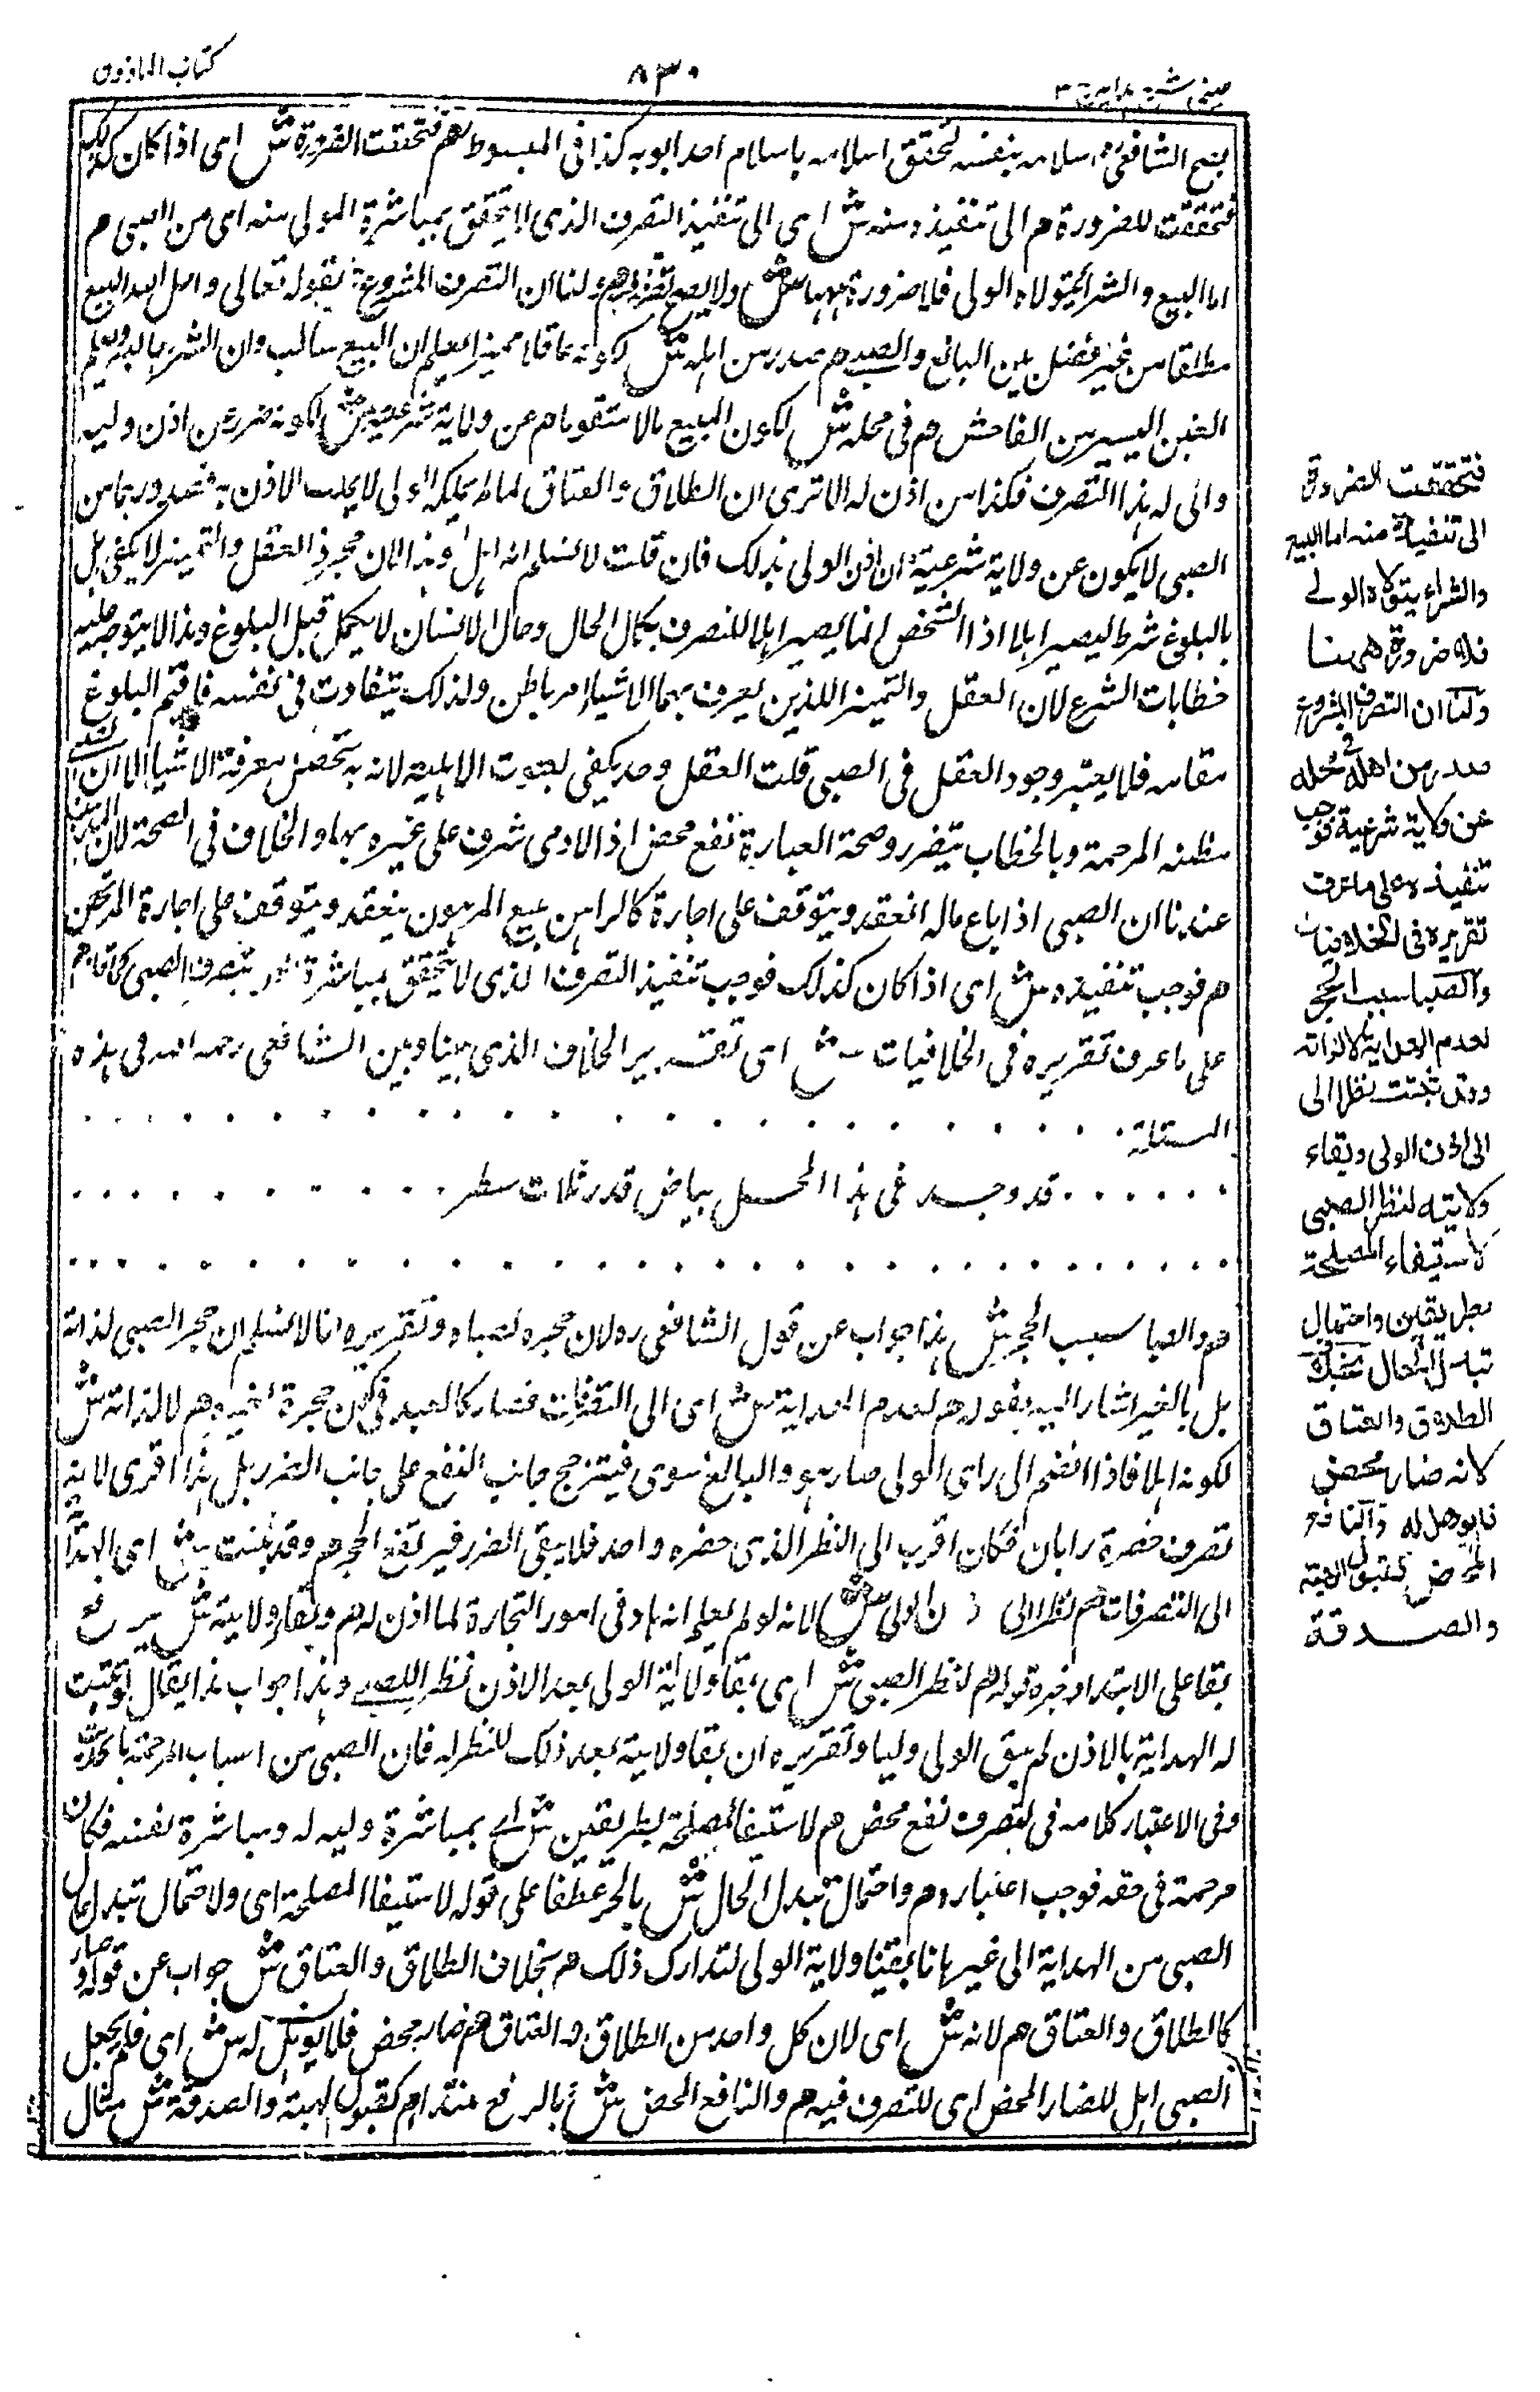 عينى شرح هداية ج ٣
٨٣٠
كتاب الماذون
يصح الشافعى اسلامه بنفسه لتحقق اسلامه باسلام احد ابويه كذا فى المبسوط هم فتحققت الضرورة ش اى اذا كان كذلك
فتحققت الضرورة هم الى تنفيذه منه ش اى الى تنفيذ التصرف الذى لا يتحقق بمباشرة المولى منه اى من الصبى م
اما البيع والشراء يتولاه الولى فلا ضرورة ههنا ش ولا يصح هم ولنا ان التصرف المشروع بقوله تعالى واحل الله البيع
مطلقا من غير فصل بين البالغ والصبى هم صدر من اهله ش لكونه عاقلا مميزا يعلم ان البيع سالب وان الشراء جالب ويعلم
الغبن اليسير من الفاحش هم فى محله ش لكون المبيع مالا متقوما هم عن ولاية شرعية ش لكونه صدر عن اذن وليه
والولى له هذا التصرف فكذا من اذن له الا ترى ان الطلاق والعتاق لما لم يملكه الولى لا يملك الاذن به فصدورهما من
الصبى لا يكون عن ولاية شرعية ان اذن الولى بذلك فان قلت لا نسلم انه اهل وهذا لان مجرد العقل والتميز لا يكفى بل
بالبلوغ شرط ليصير اهلا اذ الشخص انما يصير اهلا للتصرف بكمال الحال وحال الانسان لا يكمل قبل البلوغ ولهذا لا يتوجه عليه
خطابات الشرع لان العقل والتميز اللذين يعرف بهما الاشياء امر باطن ولذلك يتفاوت فى نفسه فاقيم البلوغ
مقامه فلا يعتبر وجود العقل فى الصبى قلت العقل وحده يكفى لثبوت الاهلية لانه به تحصل معرفة الاشياء الا ان
مظنة المرحمة وبالخطاب يتضرر وصحة العبارة نفع محض اذ الادمى شرف على غيره بها والخلاف فى الصحة لان
عندنا ان الصبى اذا باع ماله انعقد ويتوقف على اجازة كالراهن يبيع المرهون ينعقد ويتوقف على اجازة المرتهن
هم فوجب تنفيذه ش اى اذا كان كذلك فوجب تنفيذ التصرف الذى لا يتحقق بمباشرة بتصرف الصبى
على ما عرف تقريره فى الخلافيات ش اى تقرير الخلاف الذى بيننا وبين الشافعى رحمه الله فى هذه
المسئلة . . . . . . . . . . . . . . . . . .
. . . . . . قد وجد فى هذا المحل بياض قدر ثلاث سطر . . . . . . . . .
. . . . . . . . . . . . . . . . . . . . . . . .
هم والصبا سبب الحجر ش هذا جواب عن قول الشافعى ره لان حجره لصباه وتقريره انا لا نسلم ان حجر الصبى لذاته
بل بالغير اشار اليه بقوله هم لعدم الهداية ش اى الى التصرفات فصار كالعبد فى كون حجره لغيره هم لا لذاته ش
لكونه اهلا فاذا انضم الى راى الولى صار هو والبالغ سوى فيترجح جانب النفع على جانب الضرر بل هذا اقوى لانه
تصرف حضره رايان فكان اقرب الى النظر الذى حضره واحد فلا يبقى الضرر فيرتفع الحجر هم وقد ثبتت ش اى الهداية
الى التصرفات هم نظرا الى اذن الولى ش لانه لو لم يعلم انه هاد فى امور التجارة لما اذن له هم وبقاء ولايته ش يرفع
بقاء على الابتداء وخبره قوله هم لنظر الصبى ش اى بقاء ولاية الولى بعد الاذن نظرا للصبى وهذا جواب عما يقال لو ثبتت
له الهداية بالاذن لم يبق الولى وليا وتقريره ان بقاء ولايته بعد ذلك للنظر له فان الصبى من اسباب المرحمة بالحديث
وفى الاعتبار كلامه فى التصرف نفع محض هم لاستيفاء المصلحة بطريقين ش اى بمباشرة وليه له ومباشرة نفسه فكان
مرحمة فى حقه فوجب اعتباره هم واحتمال تبدل الحال ش بالجر عطفا على قوله لاستيفاء المصلحة اى ولاحتمال تبدل حال
الصبى من الهداية الى غيرها فابقينا ولاية الولى لتدارك ذلك هم بخلاف الطلاق والعتاق ش جواب عن قوله وصار
كالطلاق والعتاق هم لانه ش اى لان كل واحد من الطلاق والعتاق هم ضار محض فلا يؤهل له ش اى فلم يجعل
الصبى اهل للضار المحض اى للتصرف فيه هم والنافع المحض ش بالرفع مبتدا هم كقبول الهبة والصدقة ش مثال
فتحققت الضرورة
الى تنفيذه منه اما البيع
والشراء يتولاه الولى
فلا ضرورة ههنا
ولنا ان التصرف المشروع
صدر من اهله فى محله
عن ولاية شرعية فوجب
تنفيذه على ما عرف
تقريره فى الخلافيات
والصبا سبب الحجر
لعدم الهداية لا لذاته
وقد ثبتت نظرا الى
الى اذن الولى وبقاء
ولايته لنظر الصبى
لاستيفاء المصلحة
بطريقين واحتمال
تبدل الحال بخلاف
الطلاق والعتاق
لانه ضار محض
فلم يؤهل له والنافع
المحض كقبول الهبة
والصدقة